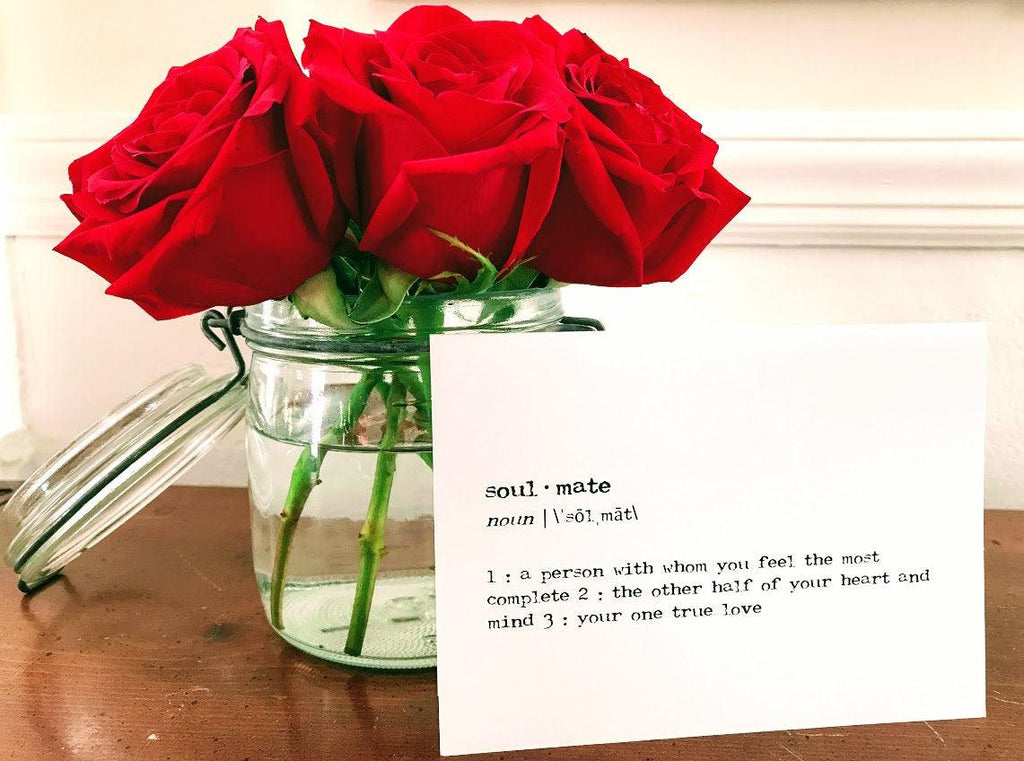 soul · mate
noun | \ˈsōl ˌmāt\
1 : a person with whom you feel the most
complete 2 : the other half of your heart and
mind 3 : your one true love